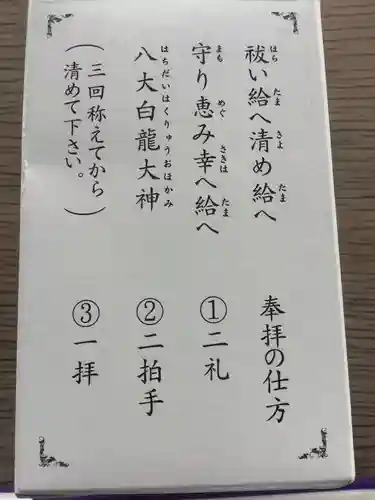 祓い給へ清め給へ
守り恵み幸へ給へ
八大白龍大神
(三回称えてから
清めて下さい。)
奉拝の仕方
①二礼
②二拍手
③一拝